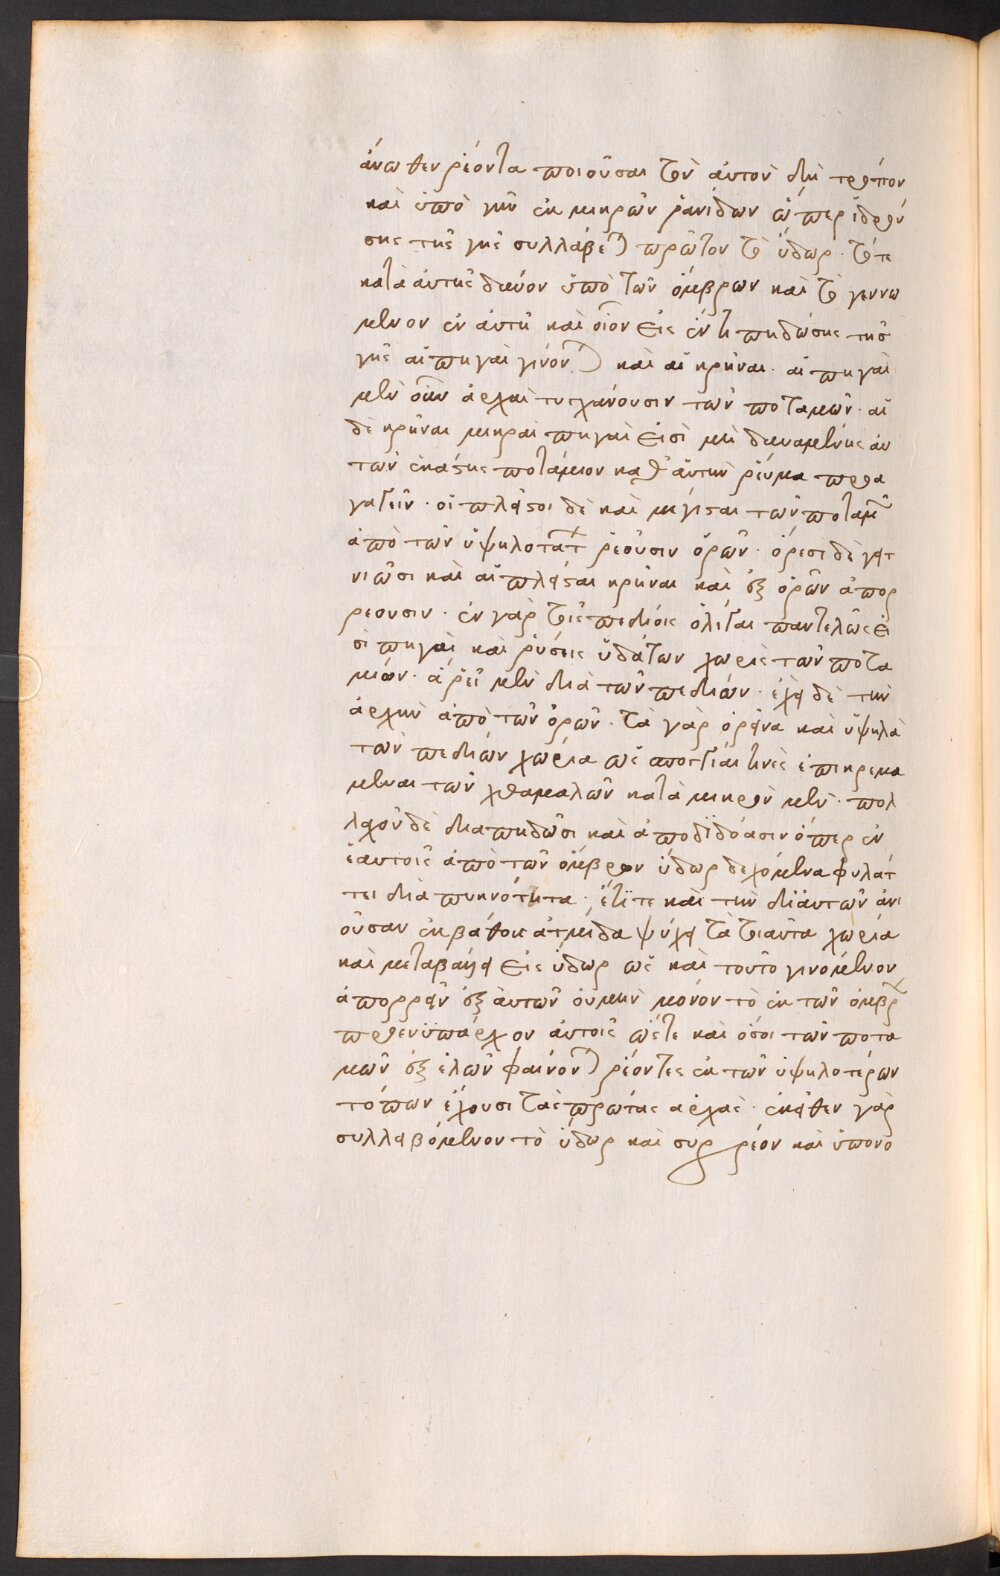 ἄνωθεν ῥέοντα ποιοῦσαι τὸν αὐτὸν δὴ τρόπον
καὶ ὑπὸ γῆν ἐκ μικρῶν ῥανίδων ὥσπερ ἱδρού
σης τῆς γῆς συλλάβεται πρῶτον τὸ ὕδωρ· τότε
κατὰ αὐτῆς διιόν ὑπὸ τῶν ὄμβρων καὶ τὸ γεννώ
μενον ἐν αὐτῇ καὶ οἷον εἰς ἓν πηδώσης τῆς
γῆς αἱ πηγαὶ γίνονται καὶ αἱ κρῆναι· αἱ πηγαὶ
μὲν οὖν ἀρχαὶ τυγχάνουσιν τῶν ποταμῶν· αἱ
δὲ κρῆναι μικραὶ πηγαὶ εἰσὶ μὴ δυναμένης αὐ
τῶν ἑκάστης ποτάμιον καθ' αὑτὴν ῥεῦμα προα
γαγεῖν· οἱ πλεῖστοι δὲ καὶ μέγισται τῶν ποταμῶν
ἀπὸ τῶν ὑψηλοτάτων ῥέουσιν ὀρῶν· ὄρεσι δὲ γειτ
νιῶσι καὶ αἱ πλεῖσται κρῆναι καὶ ἐξ ὀρῶν ἀπορ
ρέουσιν· ἐν γὰρ τοῖς πεδίοις ὀλίγαι παντελῶς εἰ
σὶ πηγαὶ καὶ ῥύσεις ὑδάτων χωρὶς τῶν ποτα
μῶν· ἃ ῥεῖ μὲν διὰ τῶν πεδίων· ἔχει δὲ τὴν
ἀρχὴν ἀπὸ τῶν ὀρῶν· τὰ γὰρ ὀρεινὰ καὶ ὑψηλὰ
τῶν πεδίων χωρία ὡς σπογγίαι τινὲς ἐπικρεμά
μεναι τῶν χθαμαλῶν κατὰ μικρὸν μὲν· πολ
λαχοῦ δὲ διαπηδῶσι καὶ ἀποδιδόασιν ὅπερ ἐν
ἑαυτοῖς ἀπὸ τῶν ὄμβρων ὕδωρ δεχόμενα φυλάτ
τει διὰ πυκνότητα· ἔτι τε καὶ τὴν δι' αὐτῶν ἀνι
οῦσαν ἐκ βάθους ἀτμίδα ψύχει τὰ τοιαῦτα χωρία
καὶ μεταβάλλει εἰς ὕδωρ ὡς καὶ τοῦτο γινόμενον
ἀπορρεῖν ἐξ αὐτῶν οὐ μὴν μόνον τὸ ἐκ τῶν ὄμβρων
προενϋπάρχον αὐτοῖς ὥστε καὶ ὅσοι τῶν ποτα
μῶν ἐξ ἑλῶν φαίνονται ῥέοντες ἐκ τῶν ὑψηλοτέρων
τόπων ἔχουσι τὰς πρώτας ἀρχάς· ἐκεῖθεν γὰρ
συλλειβόμενον τὸ ὕδωρ καὶ συρρέον καὶ ὑπονο